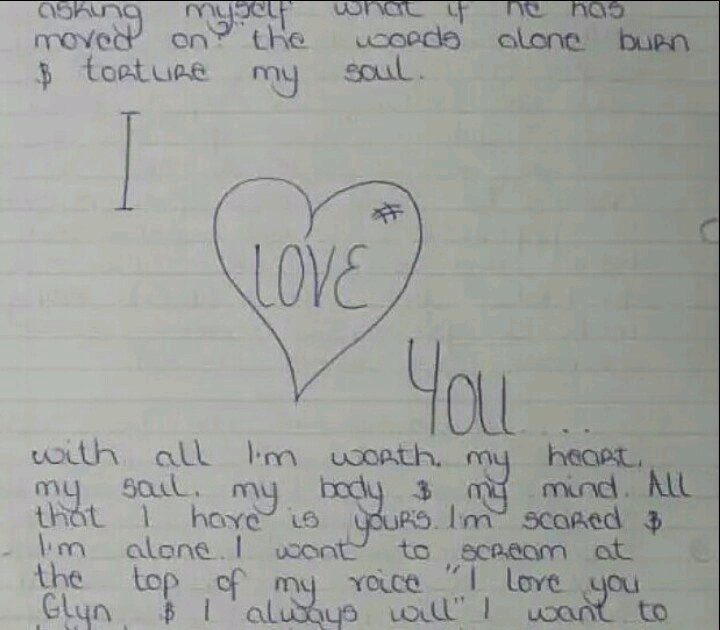 asking myself what if he has
moved on? the words alone burn
& torture my soul.
I
LOVE
You....
with all I'm worth, my heart,
my soul, my body & my mind. All
that I have is yours. I'm scared &
I'm alone. I want to scream at
the top of my voice "I love you
Glyn & I always will" I want to